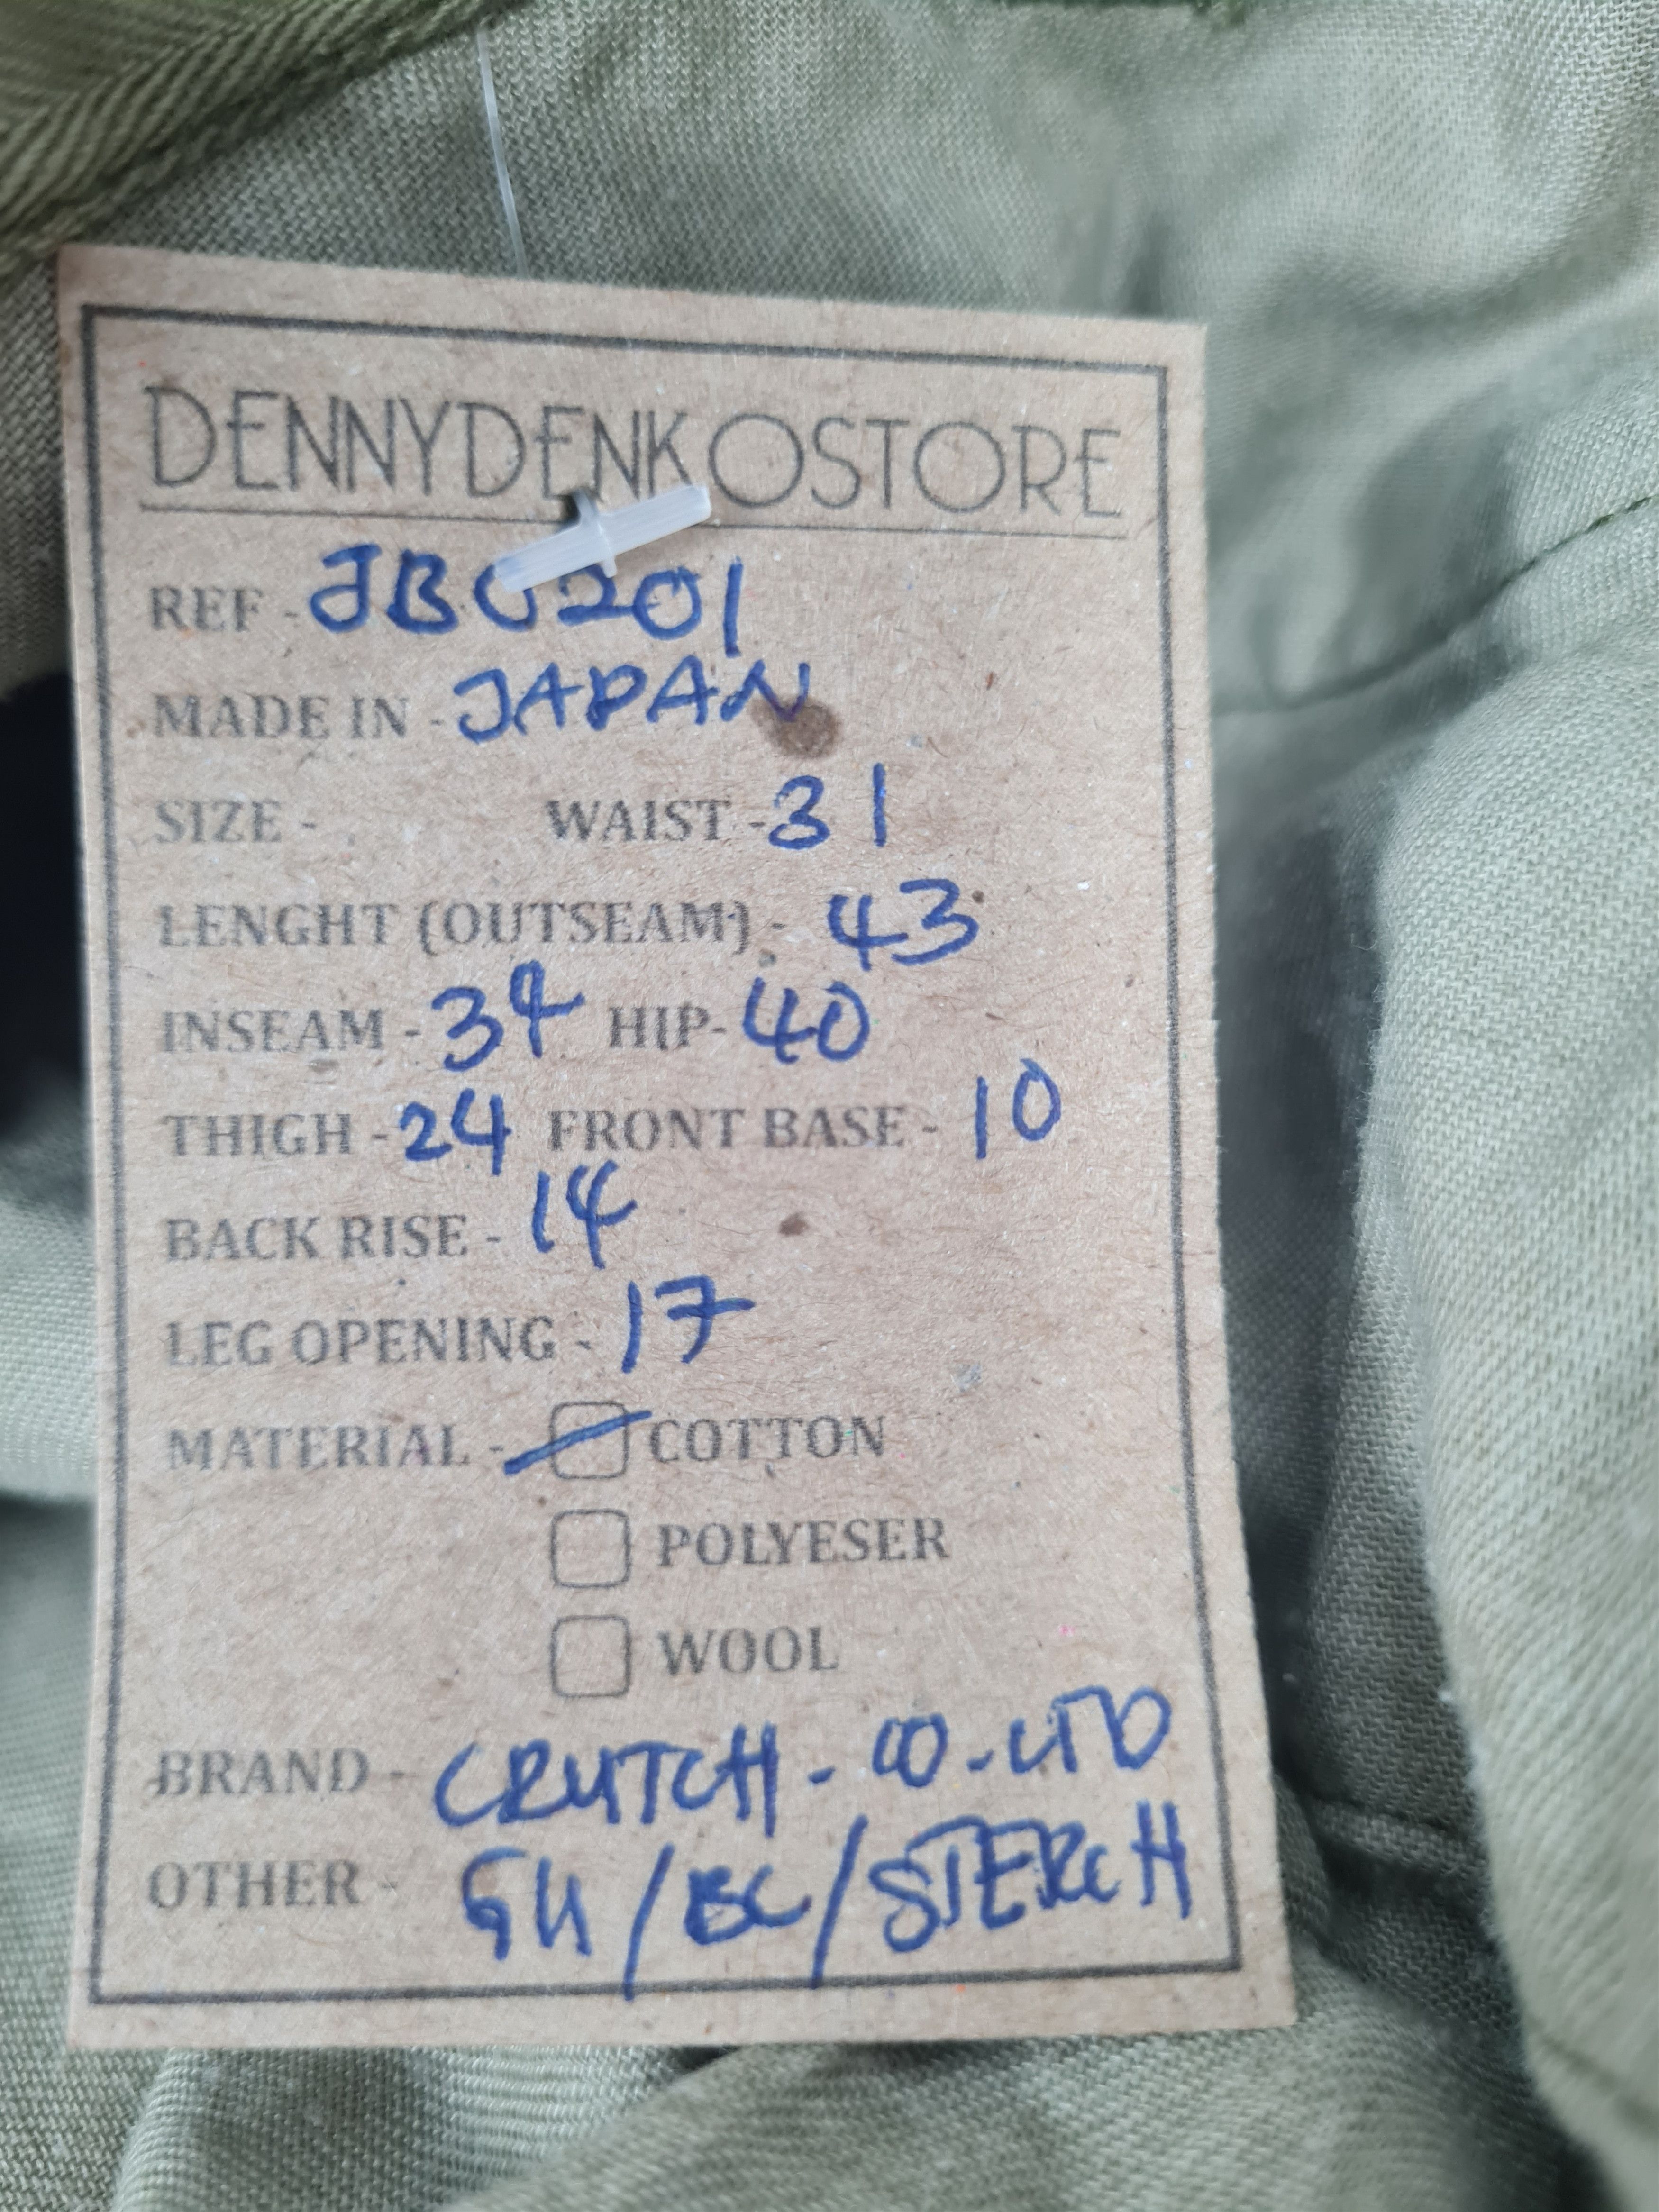 DENNYDENKOSTORE
REF - JB0201
MADE IN - JAPAN
SIZE - WAIST - 31
LENGHT (OUTSEAM) - 43
INSEAM - 34 HIP- 40
THIGH - 24 FRONT BASE - 10
BACK RISE - 14
LEG OPENING - 17
MATERIAL - COTTON
POLYESER
WOOL
BRAND - CRUTCH - CO - LTD
OTHER - / BC / STERCH